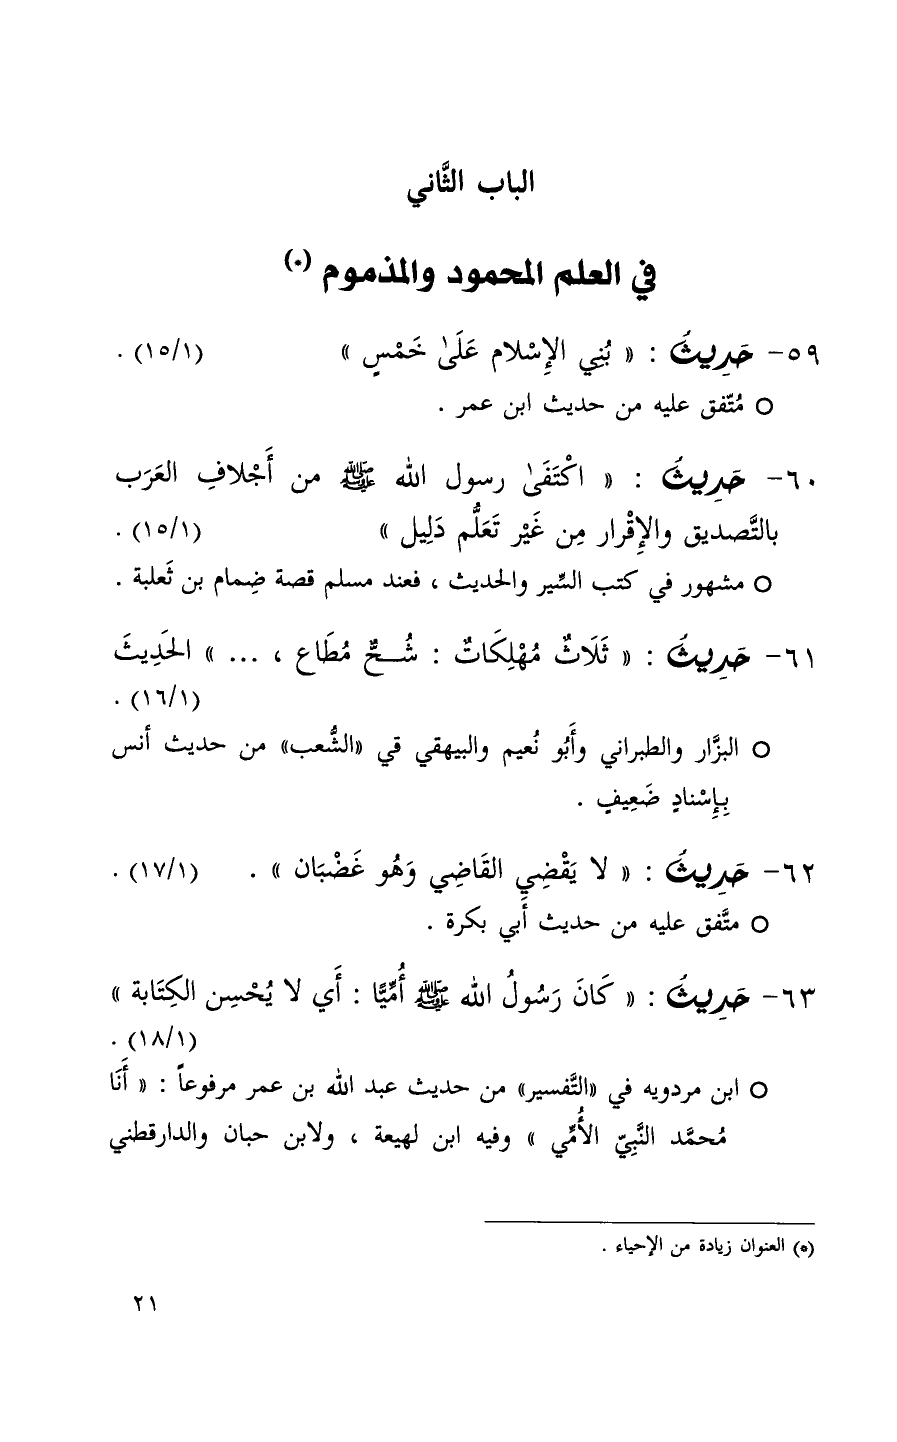 الباب الثَّاني
في العلم المحمود والمذموم (*)
٥٩- حَدِيثُ : « بُنِي الإِسْلام عَلَىٰ خَمْسٍ » (١٥/١) .
○ مُتّفق عليه من حديث ابن عمر .
٦٠- حَدِيثُ : « اكْتَفَىٰ رسول الله ﷺ من أَجْلافِ العَرَب
بالتَّصديق والإِقْرار مِن غَيْر تَعَلُّم دَلِيل » (١٥/١) .
○ مشهور في كتب السِّير والحديث ، فعند مسلم قصة ضِمام بن ثَعلبة .
٦١- حَدِيثُ : « ثَلَاثٌ مُهْلِكَاتٌ : شُـحٌّ مُطَاع ، ... » الحَدِيثَ
(١٦/١) .
○ البزَّار والطبراني وأَبُو نُعيم والبيهقي قي «الشُّعب» من حديث أنس
بِإِسْنادٍ ضَعِيفٍ .
٦٢- حَدِيثُ : « لا يَقْضِي القَاضِي وَهُو غَضْبَان » . (١٧/١) .
○ متَّفق عليه من حديث أَبي بكرة .
٦٣- حَدِيثُ : « كَانَ رَسُولُ الله ﷺ أُمِّيًّا : أَي لا يُحْسِن الكِتَابة »
(١٨/١) .
○ ابن مردويه في «التَّفسير» من حديث عبد الله بن عمر مرفوعاً : « أَنَا
مُحمَّد النَّبِيّ الأُمِّي » وفيه ابن لهيعة ، ولابن حبان والدارقطني
(*) العنوان زيادة من الإحياء .
٢١